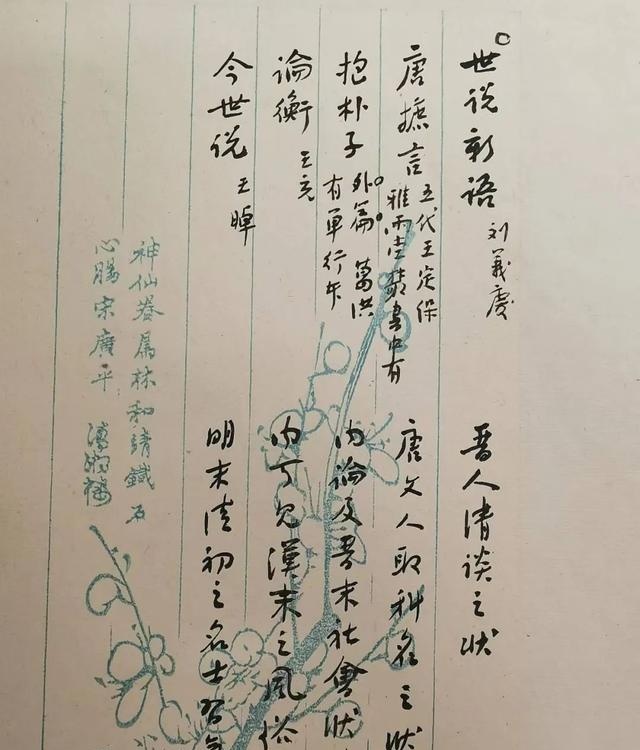 世说新语 刘義慶
晋人清谈之状
唐摭言 五代王定保
雅雨堂叢書中有
唐文人取科名之状
抱朴子 外篇 葛洪
有單行本
内論及晋末社會状
論衡 王充
内可見漢末之風俗
今世说 王晫
明末清初之名士習氣
神仙眷属林和靖鐵石
心腸宋廣平